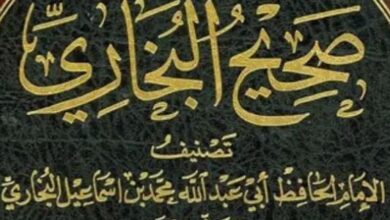 صَحِيحُ البُخَارِيِّ
تَصْنِيفُ
الإِمَامِ الحَافِظِ أَبِي عَبْدِ اللَّهِ مُحَمَّدِ بْنِ إِسْمَاعِيلَ البُخَارِيِّ